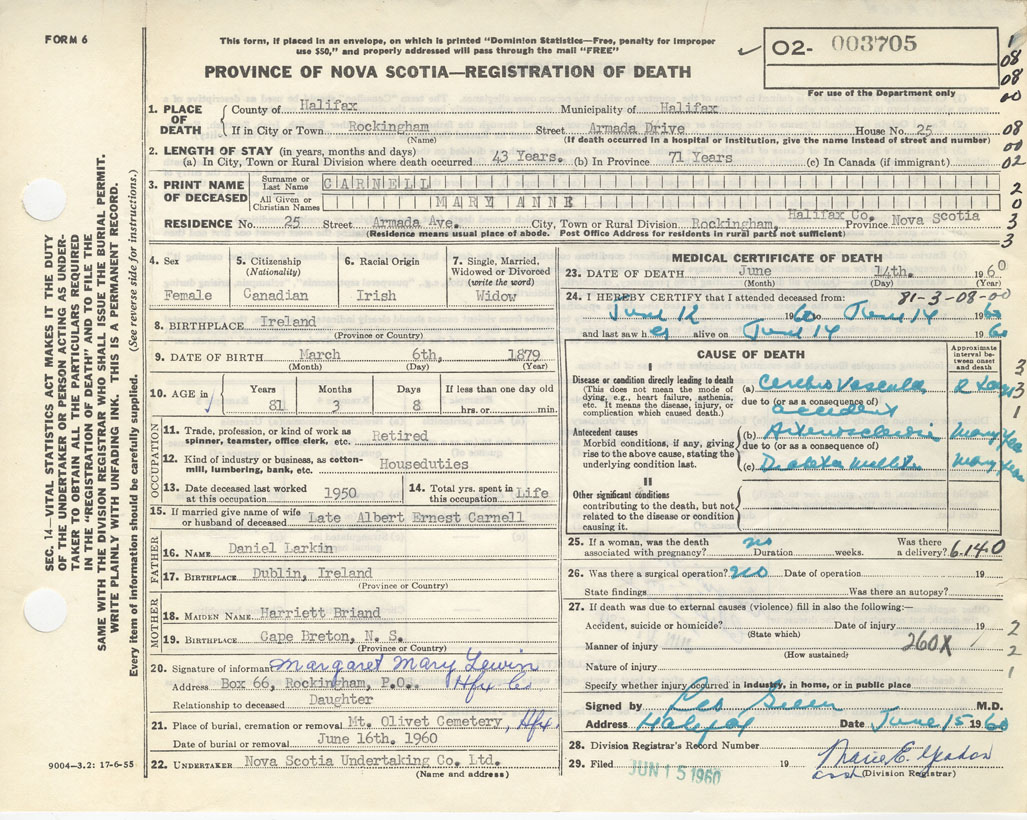 FORM 6
This form, if placed in an envelope, on which is printed "Dominion Statistics—Free, penalty for improper
use $50," and properly addressed will pass through the mail "FREE"
PROVINCE OF NOVA SCOTIA—REGISTRATION OF DEATH
02- 003705
For use of the Department only
1. PLACE OF DEATH
County of Halifax Municipality of Halifax
If in City or Town Rockingham Street Armada Drive House No. 25
(Name) (If death occurred in a hospital or institution, give the name instead of street and number)
2. LENGTH OF STAY (in years, months and days)
(a) In City, Town or Rural Division where death occurred 43 Years. (b) In Province 71 Years (c) In Canada (if immigrant)
3. PRINT NAME OF DECEASED
Surname or Last Name CARNELL
All Given or Christian Names MARY ANNE
RESIDENCE No. 25 Street Armada Ave. City, Town or Rural Division Rockingham, Halifax Co. Province Nova Scotia
(Residence means usual place of abode. Post Office Address for residents in rural parts not sufficient)
4. Sex Female
5. Citizenship (Nationality) Canadian
6. Racial Origin Irish
7. Single, Married, Widowed or Divorced (write the word) Widow
8. BIRTHPLACE Ireland
(Province or Country)
9. DATE OF BIRTH March 6th, 1879
(Month) (Day) (Year)
10. AGE in Years 81 Months 3 Days 8 If less than one day old hrs. or min.
OCCUPATION
11. Trade, profession, or kind of work as spinner, teamster, office clerk, etc. Retired
12. Kind of industry or business, as cotton-mill, lumbering, bank, etc. Houseduties
13. Date deceased last worked at this occupation 1950
14. Total yrs. spent in this occupation Life
15. If married give name of wife or husband of deceased Late Albert Ernest Carnell
FATHER
16. NAME Daniel Larkin
17. BIRTHPLACE Dublin, Ireland
(Province or Country)
MOTHER
18. MAIDEN NAME Harriett Briand
19. BIRTHPLACE Cape Breton, N. S.
(Province or Country)
20. Signature of informant Margaret Mary Lewin
Address Box 66, Rockingham, P.O. Hfx Co
Relationship to deceased Daughter
21. Place of burial, cremation or removal Mt. Olivet Cemetery, Hfx.
Date of burial or removal June 16th. 1960
22. UNDERTAKER Nova Scotia Undertaking Co. Ltd.
(Name and address)
MEDICAL CERTIFICATE OF DEATH
23. DATE OF DEATH June 14th. 1960
(Month) (Day) (Year)
24. I HEREBY CERTIFY that I attended deceased from: 81-3-08-00
June 12 1960 to June 14 1960
and last saw her alive on June 14 1960
CAUSE OF DEATH
Approximate interval between onset and death
I
Disease or condition directly leading to death
(This does not mean the mode of dying, e.g., heart failure, asthenia, etc. It means the disease, injury, or complication which caused death.)
(a) Cerebro Vascular 2 days
due to (or as a consequence of)
accident
Antecedent causes
Morbid conditions, if any, giving rise to the above cause, stating the underlying condition last.
(b) Arteriosclerosis many
due to (or as a consequence of)
(c) Diabetes Mellitus many
II
Other significant conditions
contributing to the death, but not related to the disease or condition causing it.
25. If a woman, was the death associated with pregnancy? no Duration weeks. Was there a delivery? 6-140
26. Was there a surgical operation? no Date of operation 19
State findings Was there an autopsy?
27. If death was due to external causes (violence) fill in also the following:—
Accident, suicide or homicide? Date of injury 19
(State which)
Manner of injury 260X
(How sustained)
Nature of injury
Specify whether injury occurred in industry, in home, or in public place
Signed by Leo Green M.D.
Address Halifax Date June 15 1960
28. Division Registrar's Record Number
29. Filed JUN 15 1960 19 Marie E.
(Division Registrar)
SEC. 14—VITAL STATISTICS ACT MAKES IT THE DUTY
OF THE UNDERTAKER OR PERSON ACTING AS UNDER-
TAKER TO OBTAIN ALL THE PARTICULARS REQUIRED
IN THE "REGISTRATION OF DEATH" AND TO FILE THE
SAME WITH THE DIVISION REGISTRAR WHO SHALL ISSUE THE BURIAL PERMIT.
WRITE PLAINLY WITH UNFADING INK. THIS IS A PERMANENT RECORD.
Every item of information should be carefully supplied. (See reverse side for instructions.)
9004—3.2: 17-6-55
1
08
08
00
08
00
02
2
0
3
3
3
3
1
2
2
1